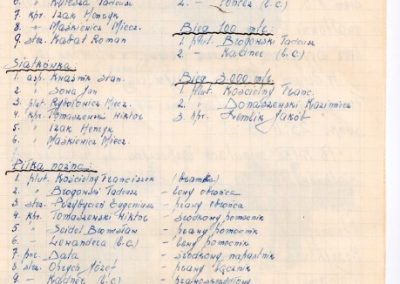 6. " Kyresza Tadeusz
7. kpr. Izak Henryk
8. " Maśkiewicz Miecz.
9. strz. Kabat Roman
Siatkówka:
1. asp. Kwaśnik Stan.
2. " Sowa Jan
3. plut. Rybotowicz Miecz.
4. kpr. Tomaszewski Wiktor
5. " Izak Henryk
6. " Maśkiewicz Miecz.
Piłka nożna:
1. plut. Kościelny Franciszek (bramka)
2. " Brogowski Tadeusz - lewy obrońca
3. strz. Przybycień Eugeniusz - prawy obrońca
4. kpr. Tomaszewski Wiktor - środkowy pomocnik
5. " Seidel Bronisław - prawy pomocnik
6. - (b.c.) - lewy pomocnik
7. Data - środkowy napastnik
8. strz. Józef - prawy łącznik
9. - Kalinec (b.c.)
2. - (b.c.)
Bieg 100 mtr.
1. plut. Brogowski Tadeusz
2. - Kalinec (b.c.)
Bieg 3000 mtr.
1. plut. Kościelny Franc.
2. " Domaszewski Kazimierz
3. kpr. Jakób